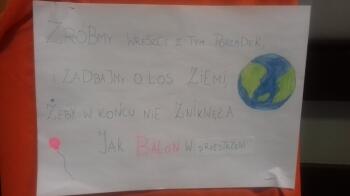 ZRÓBMY WRESZCIE Z TYM PORZĄDEK,
I ZADBAJMY O LOS ZIEMI,
ŻEBY W KOŃCU NIE ZNIKNĘŁA
JAK BALON W PRZESTRZENI